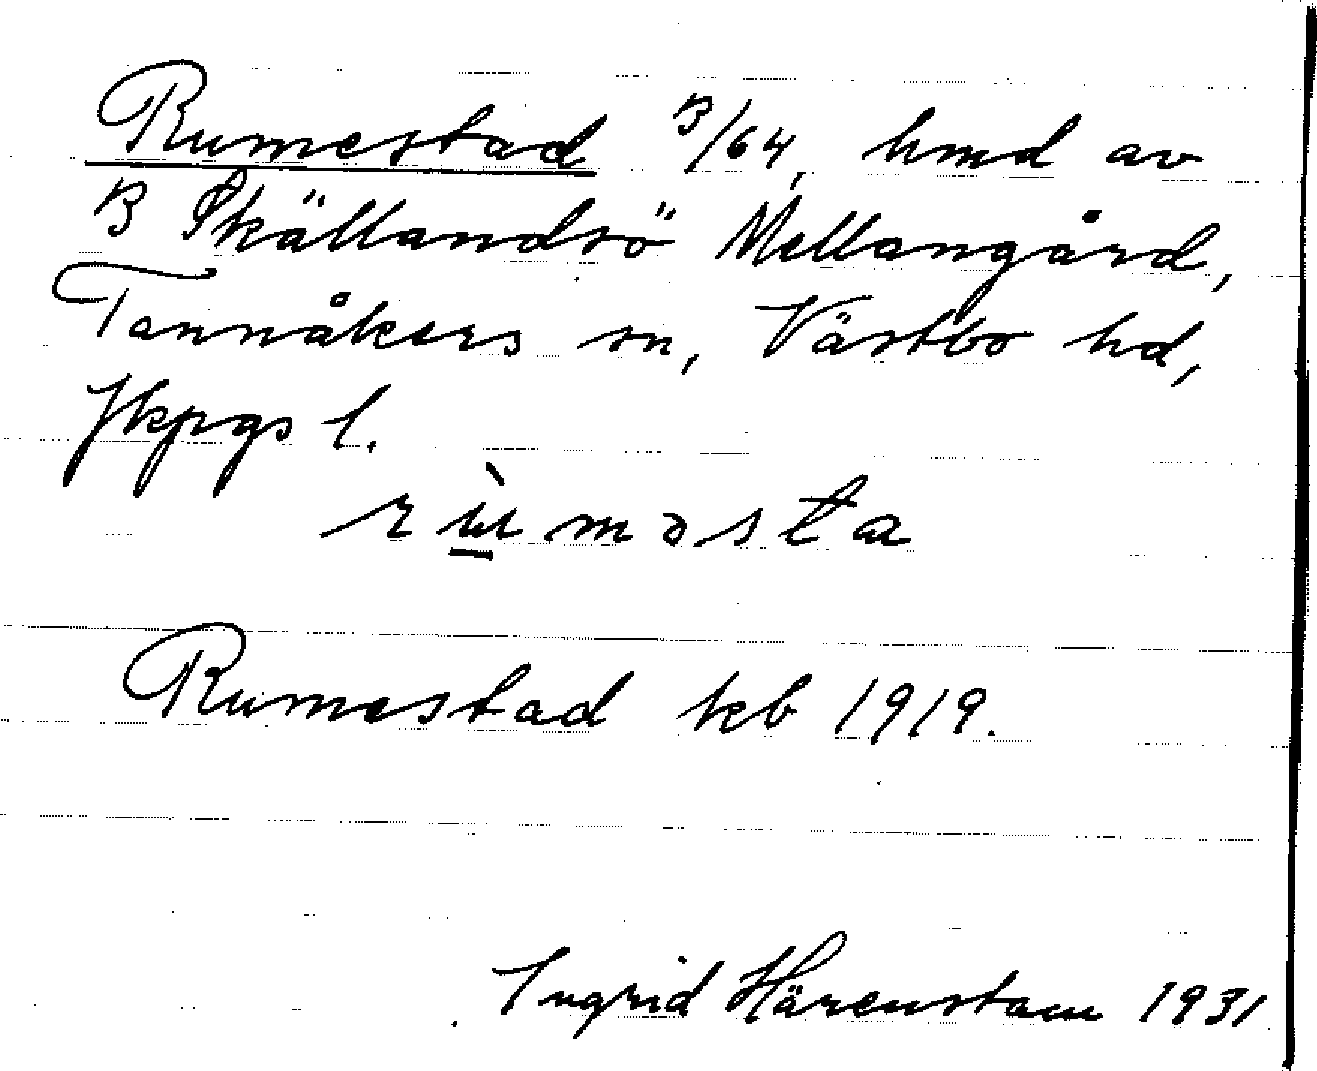 Rumestad 3/64, hmd av
B Skällandsö Mellangård,
Tannåkers sn, Västbo hd,
Jkpgs l.
rùməsta
Rumestad kb 1919.
Ingrid Härenstam 1931